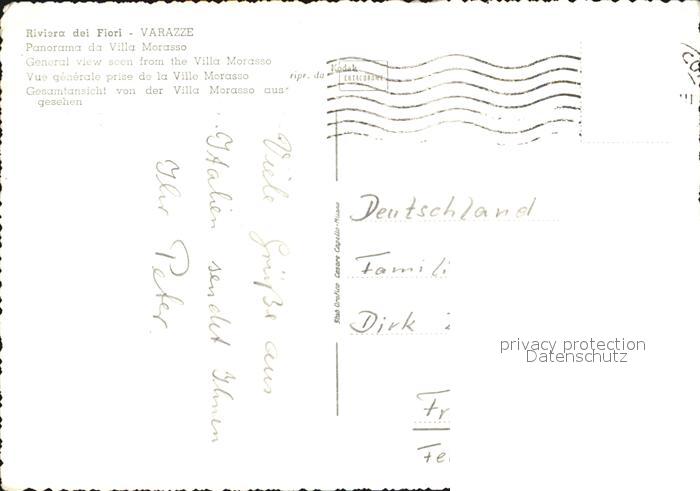 Riviera dei Fiori - VARAZZE
Panorama da Villa Morasso
General view seen from the Villa Morasso
Vue générale prise de la Ville Morasso
Gesamtansicht von der Villa Morasso aus
gesehen
ripr. da Kodak
EKTACHROME
Viele Grüße aus
Italien sendet Ihnen
Ihr Peter.
Stab. Grafico Cesare Capello-Milano
Deutschland
Famili
Dirk
Fr
Fe
privacy protection
Datenschutz